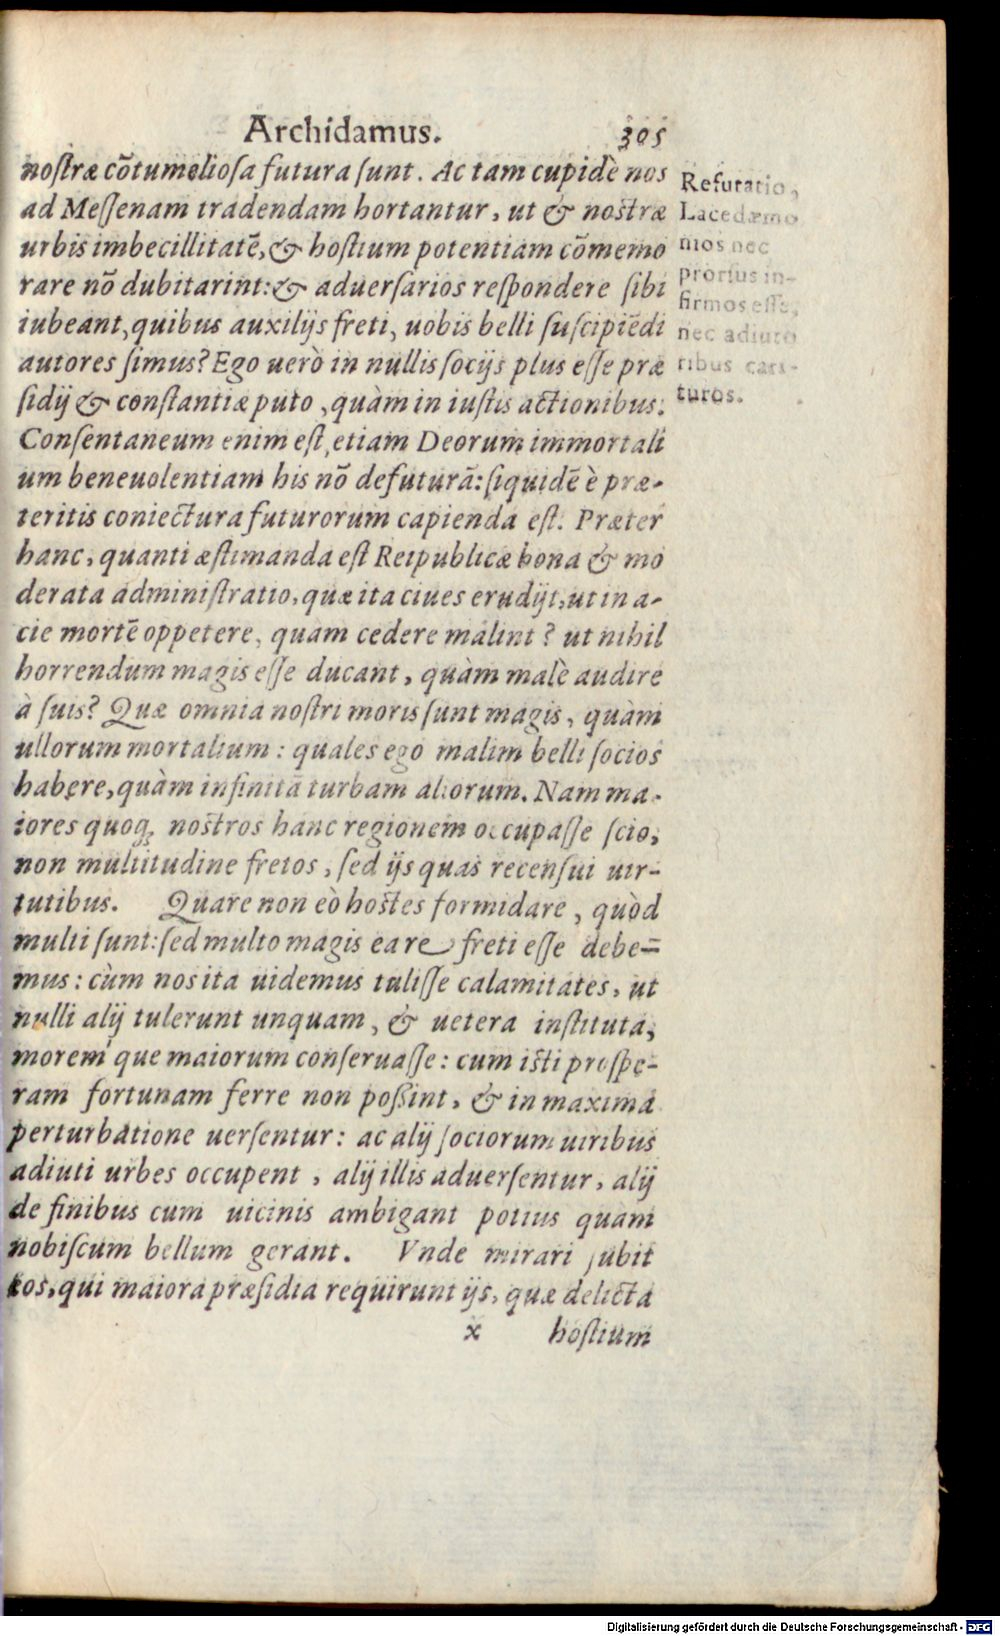 Archidamus. 305
nostræ cõtumeliosa futura sunt. Ac tam cupidè nos
ad Messenam tradendam hortantur, ut & nostræ
urbis imbecillitatẽ, & hostium potentiam cõmemo
rare nõ dubitarint: & aduersarios respondere sibi
iubeant, quibus auxilijs freti, uobis belli suscipiẽdi
autores simus? Ego uerò in nullis socijs plus esse præ
sidij & constantiæ puto, quàm in iustis actionibus.
Consentaneum enim est, etiam Deorum immortali
um beneuolentiam his nõ defuturã: siquidẽ è præ-
teritis coniectura futurorum capienda est. Præter
hanc, quanti æstimanda est Reipublicæ bona & mo
derata administratio, quæ ita ciues erudijt, ut in a-
cie mortẽ oppetere, quam cedere malint? ut nihil
horrendum magis esse ducant, quàm malè audire
à suis? Quæ omnia nostri moris sunt magis, quàm
ullorum mortalium: quales ego malim belli socios
habere, quàm infinitã turbam aliorum. Nam ma-
iores quoq; nostros hanc regionem occupasse scio,
non multitudine fretos, sed ijs quas recensui uir-
tutibus. Quare non eò hostes formidare, quòd
multi sunt: sed multo magis ea re freti esse debe-
mus: cùm nos ita uidemus tulisse calamitates, ut
nulli alij tulerunt unquam, & uetera instituta,
morem'que maiorum conseruasse: cum isti prospe-
ram fortunam ferre non possint, & in maxima
perturbatione uersentur: ac alij sociorum uiribus
adiuti urbes occupent, alij illis aduersentur, alij
de finibus cum uicinis ambigant potius quam
nobiscum bellum gerant. Vnde mirari subit
eos, qui maiora præsidia requirunt ijs, quæ delicta
x hostium
Refutatio,
Lacedæmo
nios nec
prorsus in-
firmos esse,
nec adiuto
ribus cari-
turos.
Digitalisierung gefördert durch die Deutsche Forschungsgemeinschaft - DFG